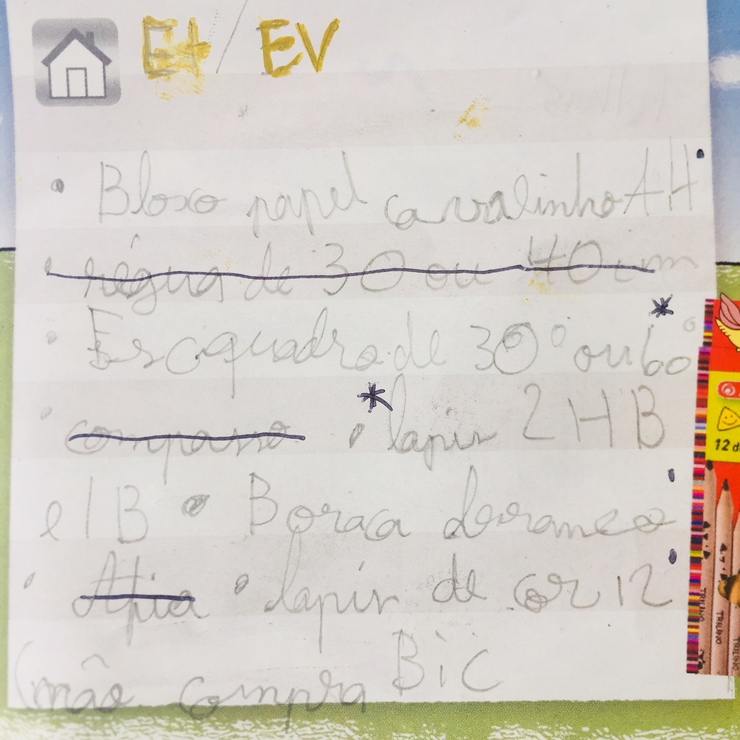 Et / EV
• Bloxo papel cavalinho A4
• régua de 30 ou 40cm
• Escquadro de 30° ou 60°
• compasso • lapis 2HB
e 1B • Boraca
• Afia • lapis de cor 12
(não compra Bic
12 d
TRILINO
TRILINO